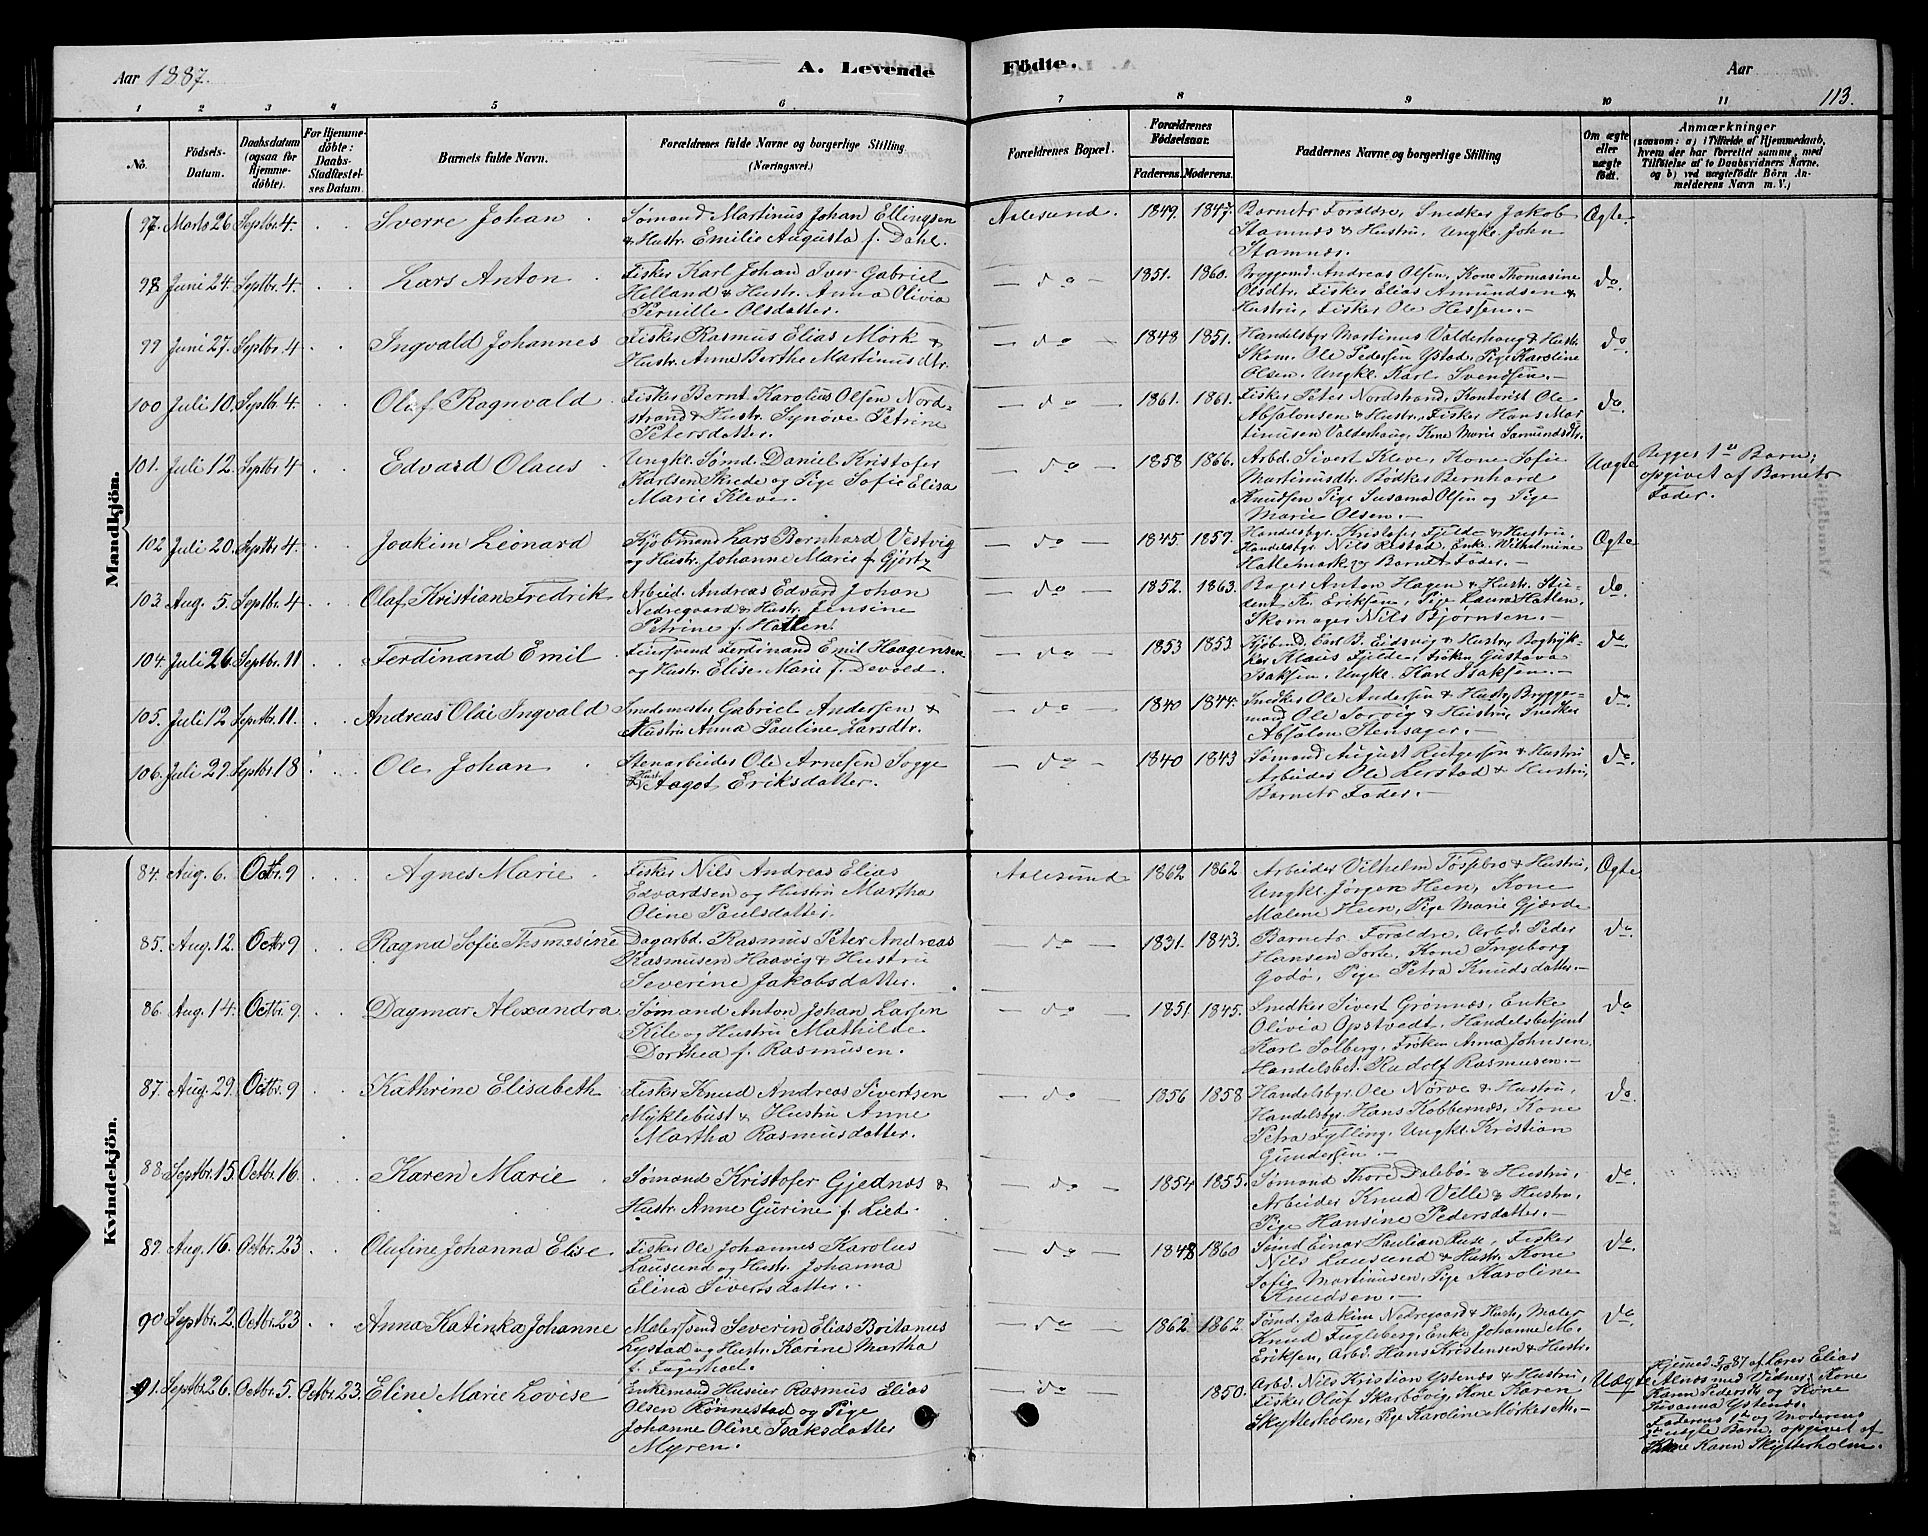 Aar 1887.
A. Levende Födte.
Aar
113.
1 2 3 4 5 6 7 8 9 10 11
No.
Födsels-Datum.
Daabsdatum (ogsaa for Hjemme-döbte).
For Hjemme-döbte: Daabs-Stadfæstel-ses Datum.
Barnets fulde Navn.
Forældrenes fulde Navne og borgerlige Stilling (Næringsvei.)
Forældrenes Bopæl.
Forældrenes Födselsaar.
Faderens. Moderens.
Faddernes Navne og borgerlige Stilling
Om ægte eller uægte födt.
Anmærkninger
(saasom: a) i Tilfælde af Hjemmedaab, hvem der har forrettet samme, med Tilföielse af to Daabsvidners Navne. og b) ved uægtefödte Börn An-melderens Navn m. V.)
Mandkjön.
97. Marts 26 Septbr. 4. Sverre Johan Sømand Martinus Johan Ellingsen
& Hustr. Emilie Augusta f. Dahl. Aalesund. 1849. 1847. Barnets Forældre, Snedker Jakob
Stamnæs & Hustru, Ungk. John
Stamnæs. Ægte.
98 Juni 24. Septbr. 4. Lars Anton Fisker Karl Johan Iver Gabriel
Helland & Hustr. Anna Olivia
Pernille Olsdatter. do 1851. 1860. Bryggemd. Andreas Olsen, Kone Thomasine
Olsdtr. Fisker Elias Amundsen &
Hustru, Fisker Ole Hessen. do.
99 Juni 27. Septbr. 4 Ingvald Johannes Fisker Rasmus Elias Mork &
Hustr. Anne Berthe Martinusdtr. do 1848 1851. Handelsbgr Martinus Valderhaug & Hustr.
Skom. Ole Pedersen Ystad, Pige Karoline
Olsen. Ungk. Karl Svendsen. do.
100 Juli 10. Septbr. 4. Olaf Ragnvald Fisker Bernt Karolius Olsen Nord-
strand & Hustr. Synøve Petrine
Petersdatter. do 1861. 1861. Fisker Peter Nordstrand, Kontorist Ole
Absalonsen & Hustru, Fisker Hans Mar-
tinusen Valderhaug, Kone Marie Samundsdtr. do.
101. Juli 12. Septbr. 4 Edvard Olaus Ungkl. Sømd. Daniel Kristofer
Karlsen Skrede og Pige Sofie Elisa
Marie Kleve. do 1858 1866. Arbd. Sivert Kleve, Kone Sofie
Martinusdtr. Bødker Bernhard
Knudsen, Pige Susanna Olsen og Pige
Marie Olsen. Uægte Begges 1ste Barn,
opgivet af Barnets
Fader.
102 Juli 20. Septbr. 4. Joakim Leonard Kjøbmand Lars Bernhard Vestvig
og Hustr. Johanne Marie f. Gjörtz do 1845. 1857. Handelsbgr. Kristofer Fjelde & Hustru,
Handelsbgr. Nils Restad, Enke Wilhelmine
Hattemark og Barnets Fader. Ægte
103. Aug. 5. Septbr. 4 Olaf Kristian Fredrik Arbeid. Andreas Edvard Johan
Nedregaard & Hustr. Jensine
Petrine f. Hatlen. do 1852. 1863. Bager Anton Hagen & Hustr. Stu-
dent K. Eriksen, Pige Laura Hatlen,
Skomager Nils Bjørnsen. do.
104. Juli 26 Septbr. 11 Ferdinand Emil Ferdinand Emil Haagensen
og Hustr. Elise Marie f. Devold. do 1853 1853 Kjøbmd. Carl B. Eidsvig & Hustr, Bogtryk-
ker Klaus Fjelde, Frøken Gustava
Isaksen, Ungk. Karl Isaksen. do
105. Juli 12 Septbr. 11. Andreas Olai Ingvald Smedemester Gabriel Andersen &
Hustru Anna Pauline Larsdtr. do 1840 1844. Snedker Ole Andersen & Hustr, Brygger-
mand Ole Sorvig & Hustru, Snedker
Absalon Stensager. do.
106. Juli 29. Septbr. 18 Ole Johan Stenarbeider Ole Arnesen Sogge
& Hustr. Aagot Eriksdatter. do 1840 1843 Sømand August Rutgersen & Hustru
Arbeider Ole Lerstad & Hustru,
Barnets Fader. do.
Kvindekjön.
84. Aug. 6. Octbr. 9 Agnes Marie Fisker Nils Andreas Elias
Edvardsen og Hustru Martha
Oline Paulsdatter. Aalesund 1862 1862 Arbeider Vilhelm Fossebro & Hustru,
Ungkl. Jørgen Heen, Kone
Malene Heen, Pige Marie Gjærde Ægte
85. Aug. 12. Octbr 9 Ragna Sofie Thomasine Dagarbd. Rasmus Peter Andreas
Rasmusen Haavig & Hustru
Severine Jakobsdatter. do 1831. 1843. Barnets Forældre, Arbd. Peder
Hansen Sorte, Kone Ingeborg
Godø, Pige Petra Knudsdatter. do.
86 Aug. 14. Octbr. 9 Dagmar Alexandra Sømand Anton Johan Larsen
Kile og Hustru Mathilde
Dorthea f. Rasmusen. do 1851. 1845. Snedker Sivert Grønnæs, Enke
Olivia Opstvedt, Handelsbetjent
Karl Solberg, Frøken Anna Johnsen,
Handelsbet. Rudolf Rasmusen. do
87. Aug. 29. Octbr. 9 Kathrine Elisabeth Fisker Knud Andreas Sivertsen
Myklebust & Hustru Anne
Martha Rasmusdatter. do 1856 1858 Handelsbgr. Ole Nørve & Hustru,
Handelsbgr. Hans Kobbernæs, Kone
Petra Fylling, Ungkl. Kristian
Gundersen. do.
88. Septbr. 15. Octbr. 16. Karen Marie Sømand Kristofer Gjednæs &
Hustr. Anne Gurine f. Lied. do 1854 1855. Sømand Thore Dalebø & Hustru,
Arbeider Knud Velle & Hustru,
Pige Hansine Pedersdatter. do
89. Aug. 16. Octbr. 23 Olufine Johanna Elise Fisker Ole Johannes Karolus
Lausund og Hustr. Johanna
Elina Sivertsdatter. do 1848 1860 Sømd. Einar Paulian Ruse, Fisker
Nils Lausund & Hustr. Kone
Sofie Martinusen, Pige Karoline
Knudsen. do
90 Septbr. 2. Octbr. 23 Anna Katinka Johanne Malersvend Severin Elias Britanus
Lystad og Hustr. Karine Martha
f. Fagerhoel. do 1862 1862. Tømd. Joakim Nedregaard & Hustr, Maler
Knud Fugleberg, Enke Johanne M.
Eriksen, Arbd. Hans Kristensen & Hustr. do.
91. Septbr. 26. Octbr. 5. Octbr. 23. Eline Marie Lovise Enkemand Husier Rasmus Elias
Olsen Rønnestad og Pige
Johanne Oline Isaksdatter
Myren. do 1850. Arbd. Nils Kristian Ystenæs & Hustru,
Fisker Oluf Skarbøvig, Kone Karen
Skytterholm, Pige Karoline Mørkes M. Uægte Hjemmed. 5/10 87 af Lærer Elias
Alnæs med Vidner: Kone
Karen Pedersdtr. og Kone
Susanna Ystenæs.
Faderens 1ste og Moderens
uægte Barn, opgivet af
Kone Karen Skytterholm.